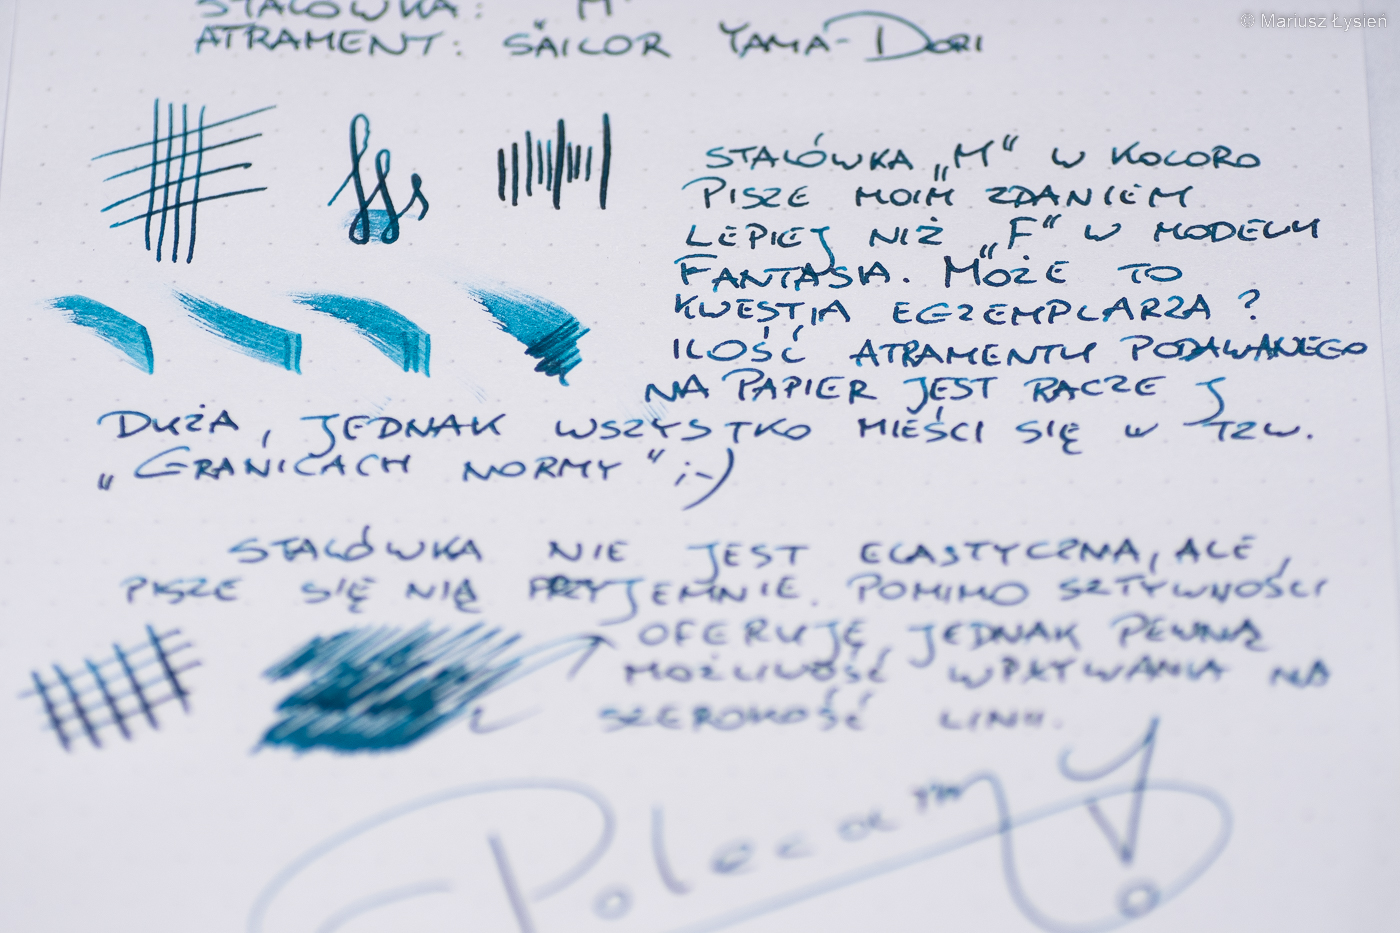 © Mariusz Łysień
STALÓWKA: M
ATRAMENT: SAILOR YAMA-DORI
STALÓWKA „M“ W KOLORO
PISZE MOIM ZDANIEM
LEPIEJ NIŻ „F“ W MODELU
FANTASIA. MOŻE TO
KWESTIA EGZEMPLARZA?
ILOŚĆ ATRAMENTU PODAWANEGO
NA PAPIER JEST RACZEJ
DUŻA, JEDNAK WSZYSTKO MIEŚCI SIĘ W TZW.
„GRANICACH NORMY“ ;-)
STALÓWKA NIE JEST ELASTYCZNA, ALE,
PISZE SIĘ NIĄ PRZYJEMNIE. POMIMO SZTYWNOŚCI
OFERUJĘ, JEDNAK PEWNĄ
MOŻLIWOŚĆ WPŁYWANIA NA
SZEROKOŚĆ LINII.
Polecam!